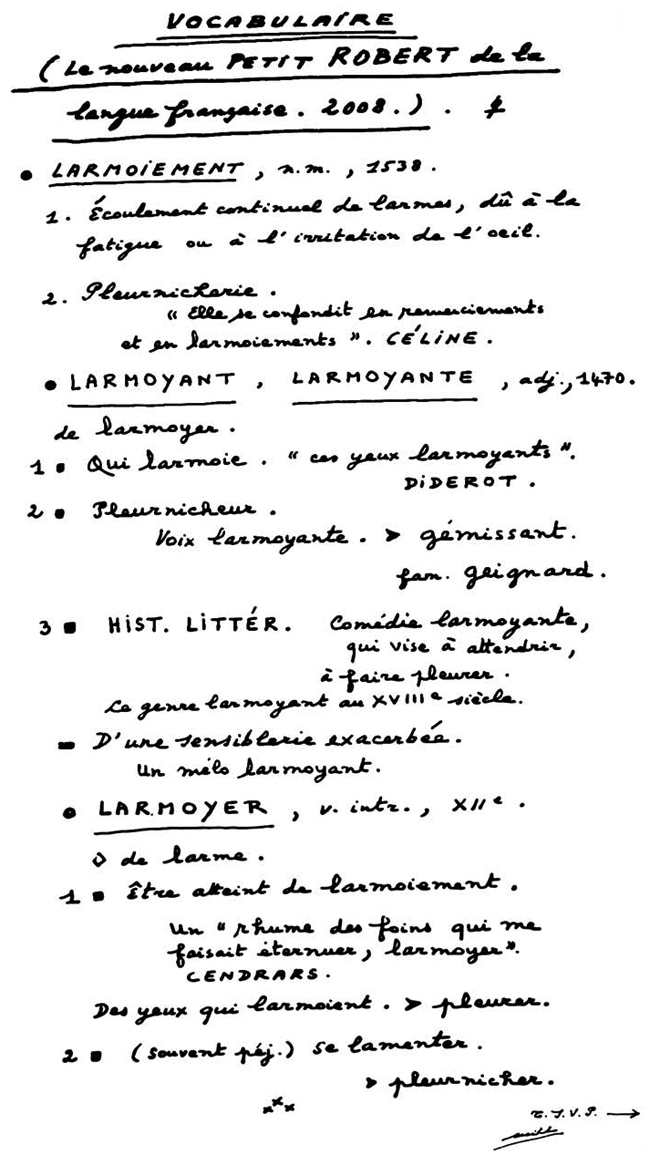 VOCABULAIRE
(Le nouveau PETIT ROBERT de la
langue française. 2008.).
• LARMOIEMENT, n.m., 1538.
1. Écoulement continuel de larmes, dû à la
fatigue ou à l'irritation de l'oeil.
2. Pleurnicherie.
"Elle se confondit en remerciements
et en larmoiements". CÉLINE.
• LARMOYANT, LARMOYANTE, adj., 1470.
de larmoyer.
1 ▪ Qui larmoie. "ces yeux larmoyants".
DIDEROT.
2 ▪ Pleurnicheur.
Voix larmoyante. > gémissant.
fam. geignard.
3 ▪ HIST. LITTÉR. Comédie larmoyante,
qui vise à attendrir,
à faire pleurer.
Le genre larmoyant au XVIIIe siècle.
▬ D'une sensiblerie exacerbée.
Un mélo larmoyant.
• LARMOYER, v. intr., XIIe.
◊ de larme.
1 ▪ Être atteint de larmoiement.
Un "rhume des foins qui me
faisait éternuer, larmoyer".
CENDRARS.
Des yeux qui larmoient. > pleurer.
2 ▪ (souvent péj.) se lamenter.
> pleurnicher.
xxx
T.S.V.P. →